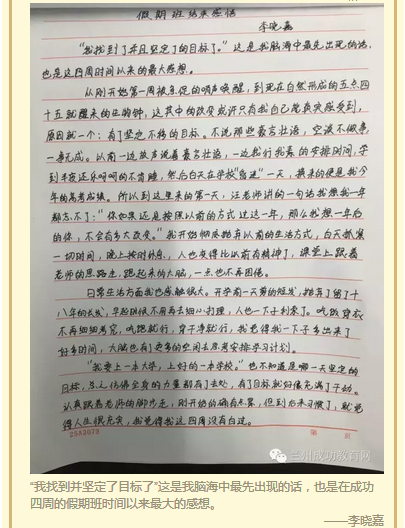 假期班结束感悟
李晓嘉
“我找到了并且坚定了目标了。”这是我脑海中最先出现的话,
也是这四周时间以来的最大感想。
从刚开始第一周被急促的哨声唤醒,到现在自然形成的五点四
十五就醒来的生物钟,这其中的改变或许只有我自己能真实感受到,
原因就一个:有了坚定不移的目标。不说那些豪言壮语,空谈不做事
一事无成。以前一边放声说着豪言壮语,一边我行我素的安排时间,学
到半夜还乐呵呵的不肯睡,然后白天在学校“昏迷”一天,换来的便是我今
年的高考成绩。所以到这里来的第一天,汪老师讲的一句话我想我一年
都忘不了:“你如果还是按照以前的方式过这一年,那么我想一年后
的你,不会有多大改变。”我开始彻底抛弃以前的生活方式,白天抓紧
一切时间,晚上按时休息,人也变得比以前有精神了,课堂上跟着
老师的思路走,跑起来的大脑,一点也不再困倦。
日常生活方面我也感触很大。开学前一天剪的短发,抛弃了留了十
八年的长发,早起跑操不用再去细心打理,人也一下子利索了。吃跑穿衣
不再细细考究,吃跑就行,穿干净就行,我觉得我一下子多出来了
好多时间,大脑也有了更多的空间去思考安排学习计划。
“我要上一本大学,上好的一本学校。”也不知道是哪一天坚定的
目标,忽然仿佛全身的力量都有了去处,有了目标就好像充满了干劲。
认真跟着老师的脚步走,刚开始的确有点累,但到后来习惯了,就觉
得人生很充实,我觉得我这四周没有白过。
25X20=75
第 页
兰州成功教育网
“我找到并坚定了目标了”这是我脑海中最先出现的话,也是在成功
四周的假期班时间以来最大的感想。
——李晓嘉